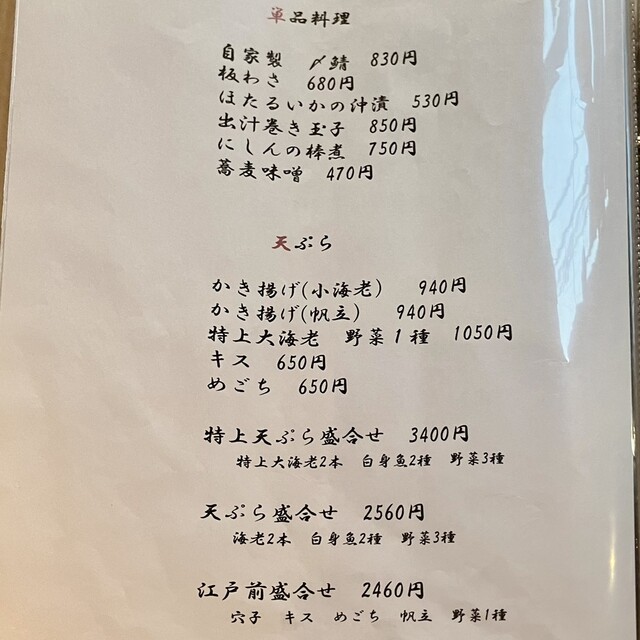 単品料理
自家製　〆鯖　830円
板わさ　680円
ほたるいかの沖漬　530円
出汁巻き玉子　850円
にしんの棒煮　750円
蕎麦味噌　470円
天ぷら
かき揚げ(小海老)　940円
かき揚げ(帆立)　940円
特上大海老　野菜１種　1050円
キス　650円
めごち　650円
特上天ぷら盛合せ　3400円
特上大海老2本　白身魚2種　野菜3種
天ぷら盛合せ　2560円
海老2本　白身魚2種　野菜3種
江戸前盛合せ　2460円
穴子　キス　めごち　帆立　野菜1種